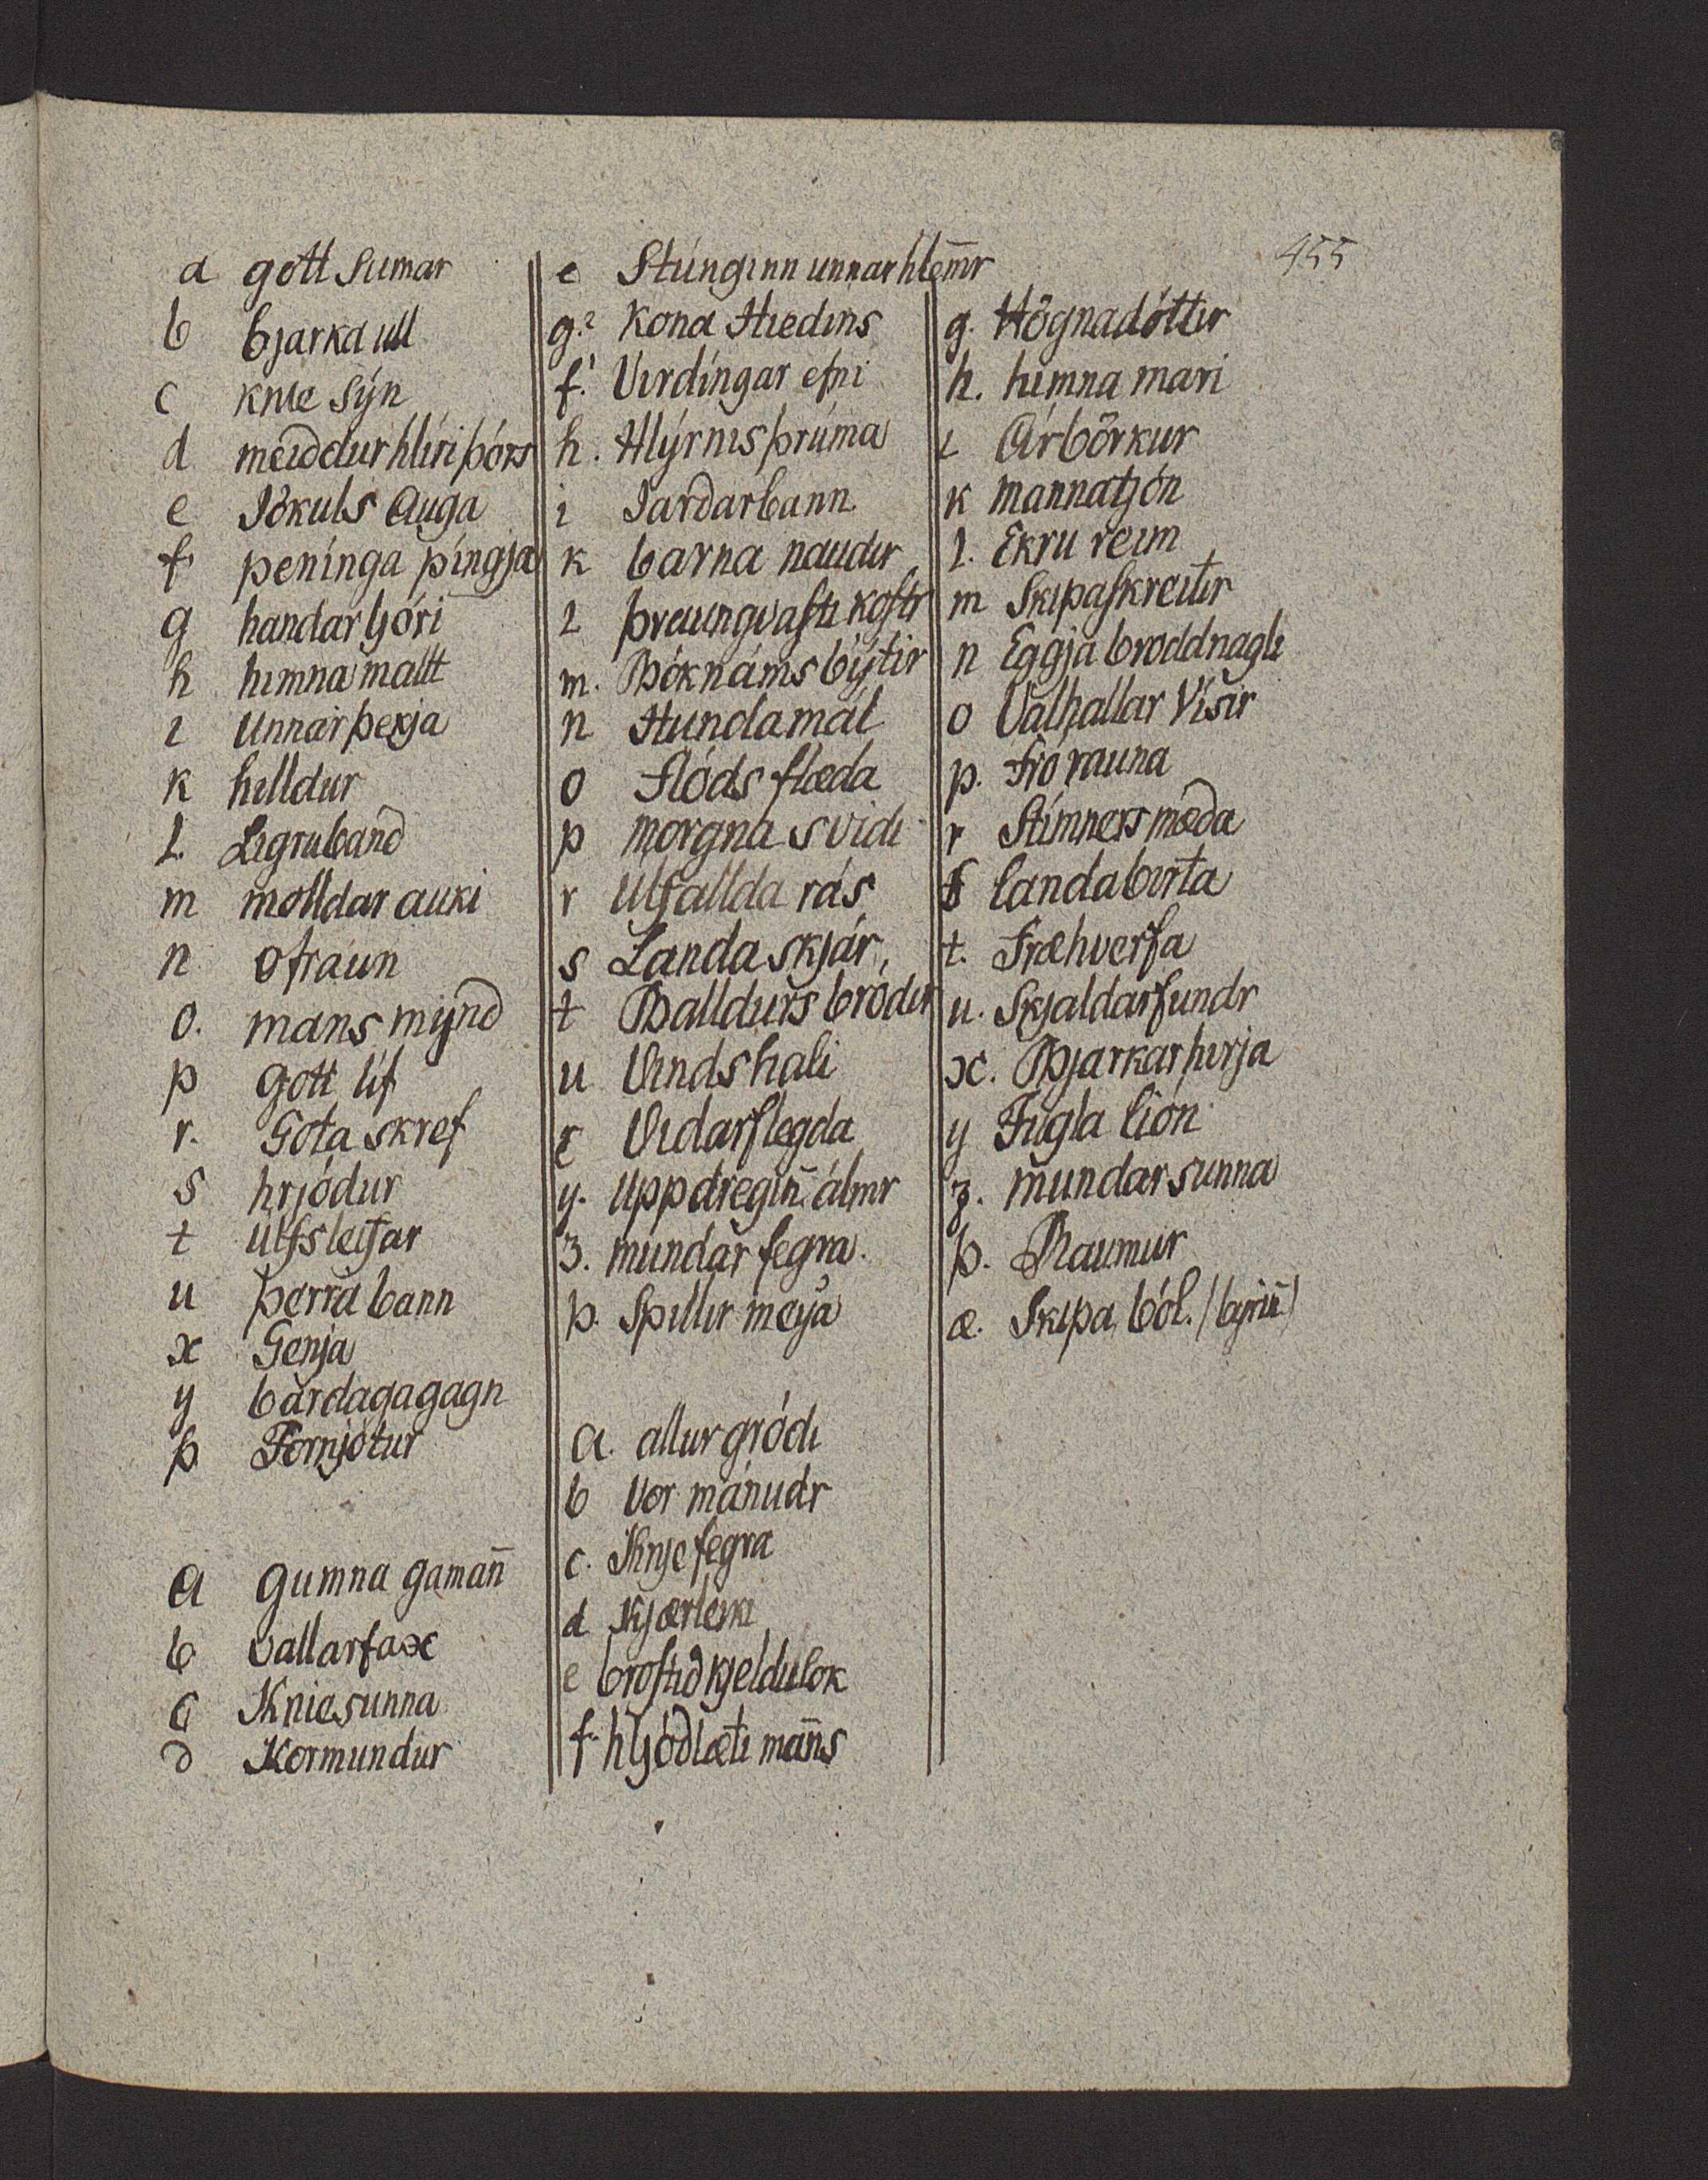 455
a gott Sumar
b bjarka ull
c knie sýn
d meiddur hliri þórs
e Jökuls Auga
f peninga pingja
g handar ljóri
h himna mallt
i Unnar þexja
k hilldur
l. Ligruband
m molldar auki
n ofraun
o. mans mÿnd
p gott líf
r. Gota skref
s hrjódur
t úlfs leifar
u þerra bann
x Genja
y bardagagagn
þ Fornjótur
a gumna gaman̄
b vallarfax
c Kniesunna
d Kormundur
e Stúnginn unnar hlem̄r
g.² Kona Hiedins
f.¹ Virdíngar efni
h. Hlýrnis þrúma
i Jardarbann
k barna naudir
l þraungvasti kostr
m. Bóknáms býtir
n Hundamál
o Flóds flæda
p morgna svidi
r Ulfallda rás
s Landa skjár
t Balldurs bródir
u Vindshali
x Vidarflegda
y. Uppdregin̄ álmr
z. mundar fegra.
þ. Spillir meÿa
a. allur gródi
b Vor mánudr
c. Knje fegra
d Kjærleiki
e brostid kjeldulok
f. hljódlæti man̄s
g. Högnadóttir
h. himna mari
i Árbörkur
k mannatjón
l. Ekru reim
m Skipaskreitir
n Eggja broddnagli
o Valhallar Vísir
p. Fró rauna
r Stímners mæda
s landabirta
t. Fræhverfa
u. Skjaldarfundr
x. Bjarkar hirja
y Fugla lion
z. mundar sunna
þ. Raumur
æ. Skipa ból. (byrin̄)